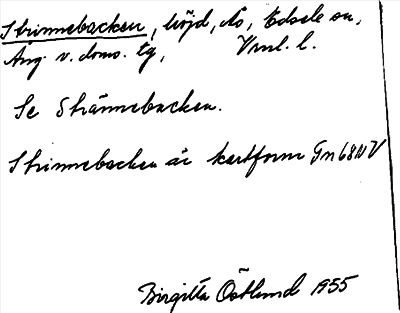 Strinnebacken, höjd, Ås, Edsele sn,
Ång. v. doms. tg, Vnl. l.
Se Strännebacken.
Strinnebacken är kartform Gn 68 NV
Birgitta Östlund 1955